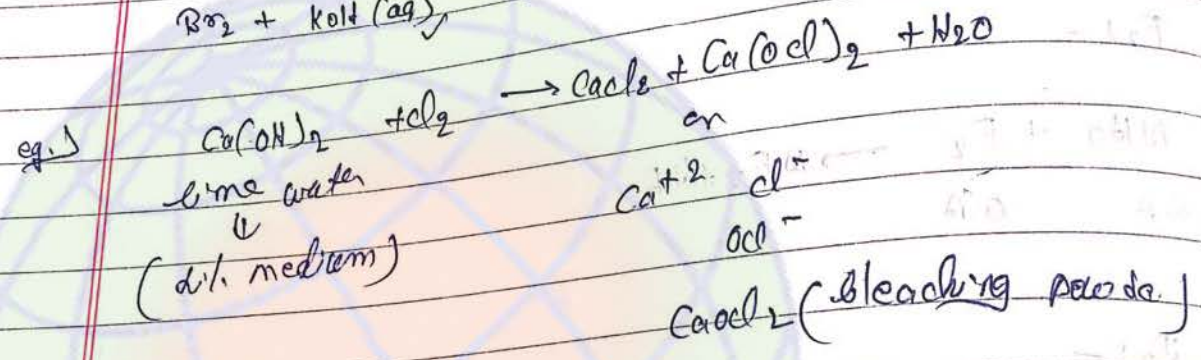 Br₂ + KOH (aq)
eg.) Ca(OH)₂ + Cl₂ → CaCl₂ + Ca(OCl)₂ + H₂O
lime water
or
⇓
Ca⁺² Cl⁻
(dil. medium)
OCl⁻
CaOCl₂ (Bleaching powde.)